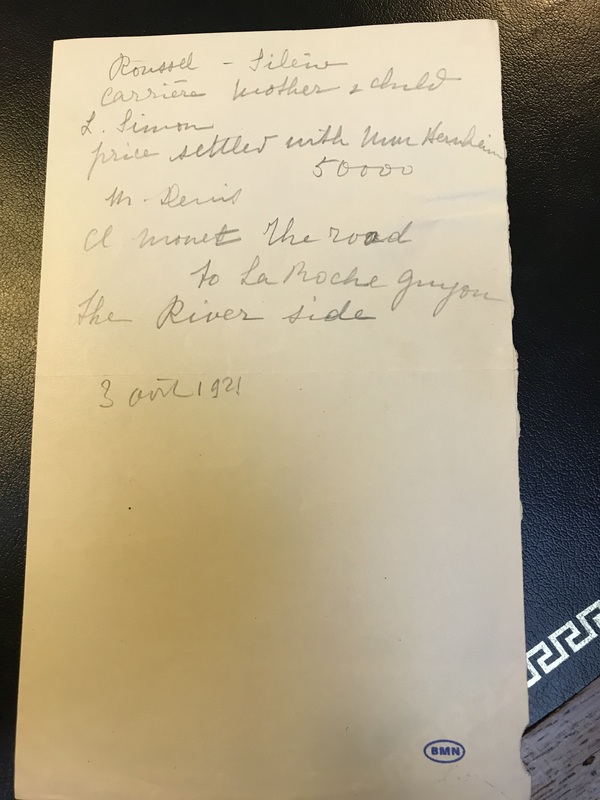 Roussel - Silène
Carrière Mother & child
L. Simon
price settled with Mm Bernheim
50000
M. Denis
Cl Monet The road
to La Roche Guyon
The River side
3 août 1921
BMN